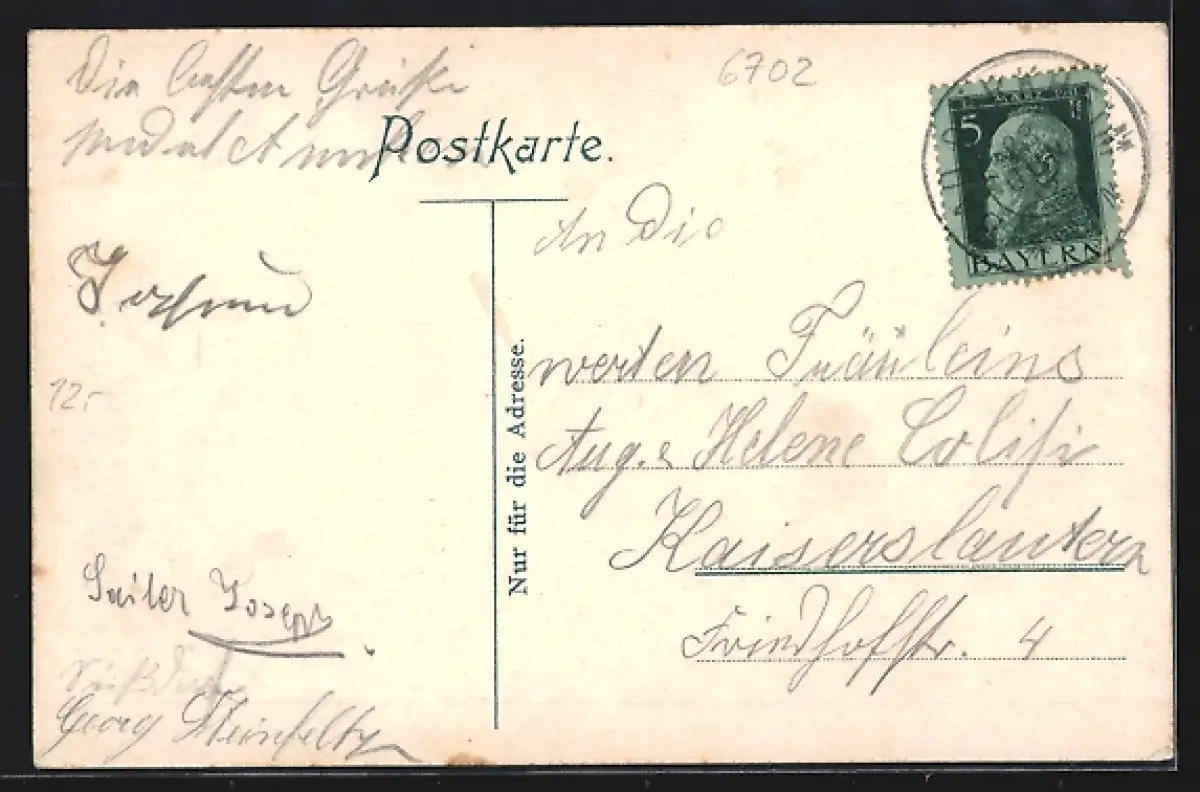 Die besten Grüße
sendet
Postkarte.
6702
5
BAYERN
12,-
Nur für die Adresse.
An Die
werten Fräuleins
Aug. & Helene Colisi
Kaiserslautern
Friedhofstr. 4
Sailer Joseph
Georg